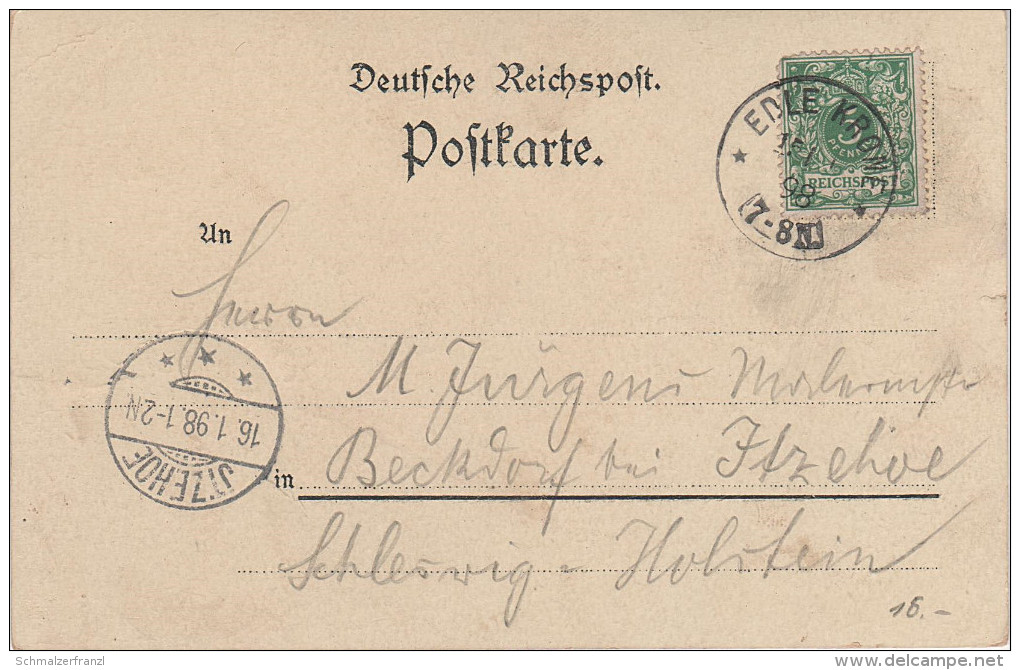 Deutsche Reichspost.
Postkarte.
EDLE KRONE
98
7-8N.
5
PFENNIG
REICHSPOST
An
Herrn
M. Jürgens Malermstr
in Beckdorf bei Itzehoe
Schleswig-Holstein
16.1.98.1-2N
ITZEHOE
Schmalzerfranzl
www.delcampe.net